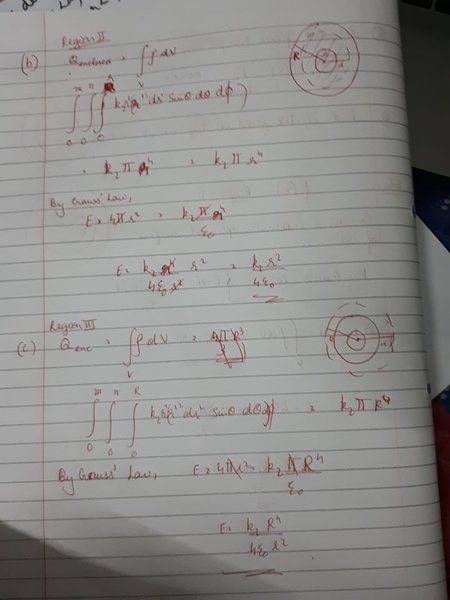 Region II
(b) Qenclosed = ∫ᵥ ρ dV
∫₀ ∫₀ ∫₀ k₂r'(r'² dr' sinθ dθ dϕ)
= k₂ π r⁴ = k₂ π r⁴
By Gauss' Law,
E × 4πr² = k₂ π r⁴ / ε₀
E = k₂ r⁴ / 4ε₀ r² r² = k₂ r² / 4ε₀
Region III
(c) Qenc = ∫ᵥ ρ dV =
∫₀ ∫₀ ∫₀ᴿ k₂r'(r'² dr' sinθ dθ dϕ) = k₂ π R⁴
By Gauss' Law, E × 4πr² = k₂ π R⁴ / ε₀
E = k₂ R⁴ / 4ε₀ r²